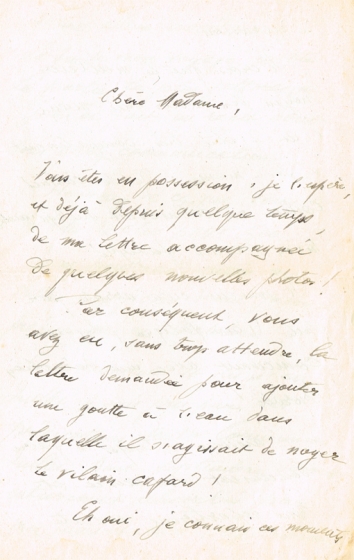 Chère Madame,
Vous êtes en possession, je l'espère,
et déjà depuis quelque temps,
de ma lettre accompagnée
de quelques nouvelles photos!
Par conséquent, vous
avez eu, sans trop attendre, la
lettre demandée pour ajouter
une goutte à l'eau dans
laquelle il s'agissait de noyer
le vilain cafard!
Eh oui, je connais ces moments